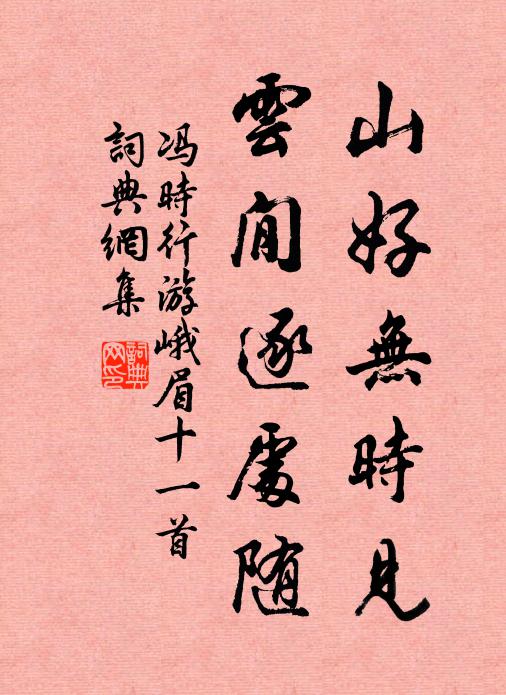 山好無時見
雲閒逐處隨
冯時行游峨眉十一首
詞典網集
詞典網印